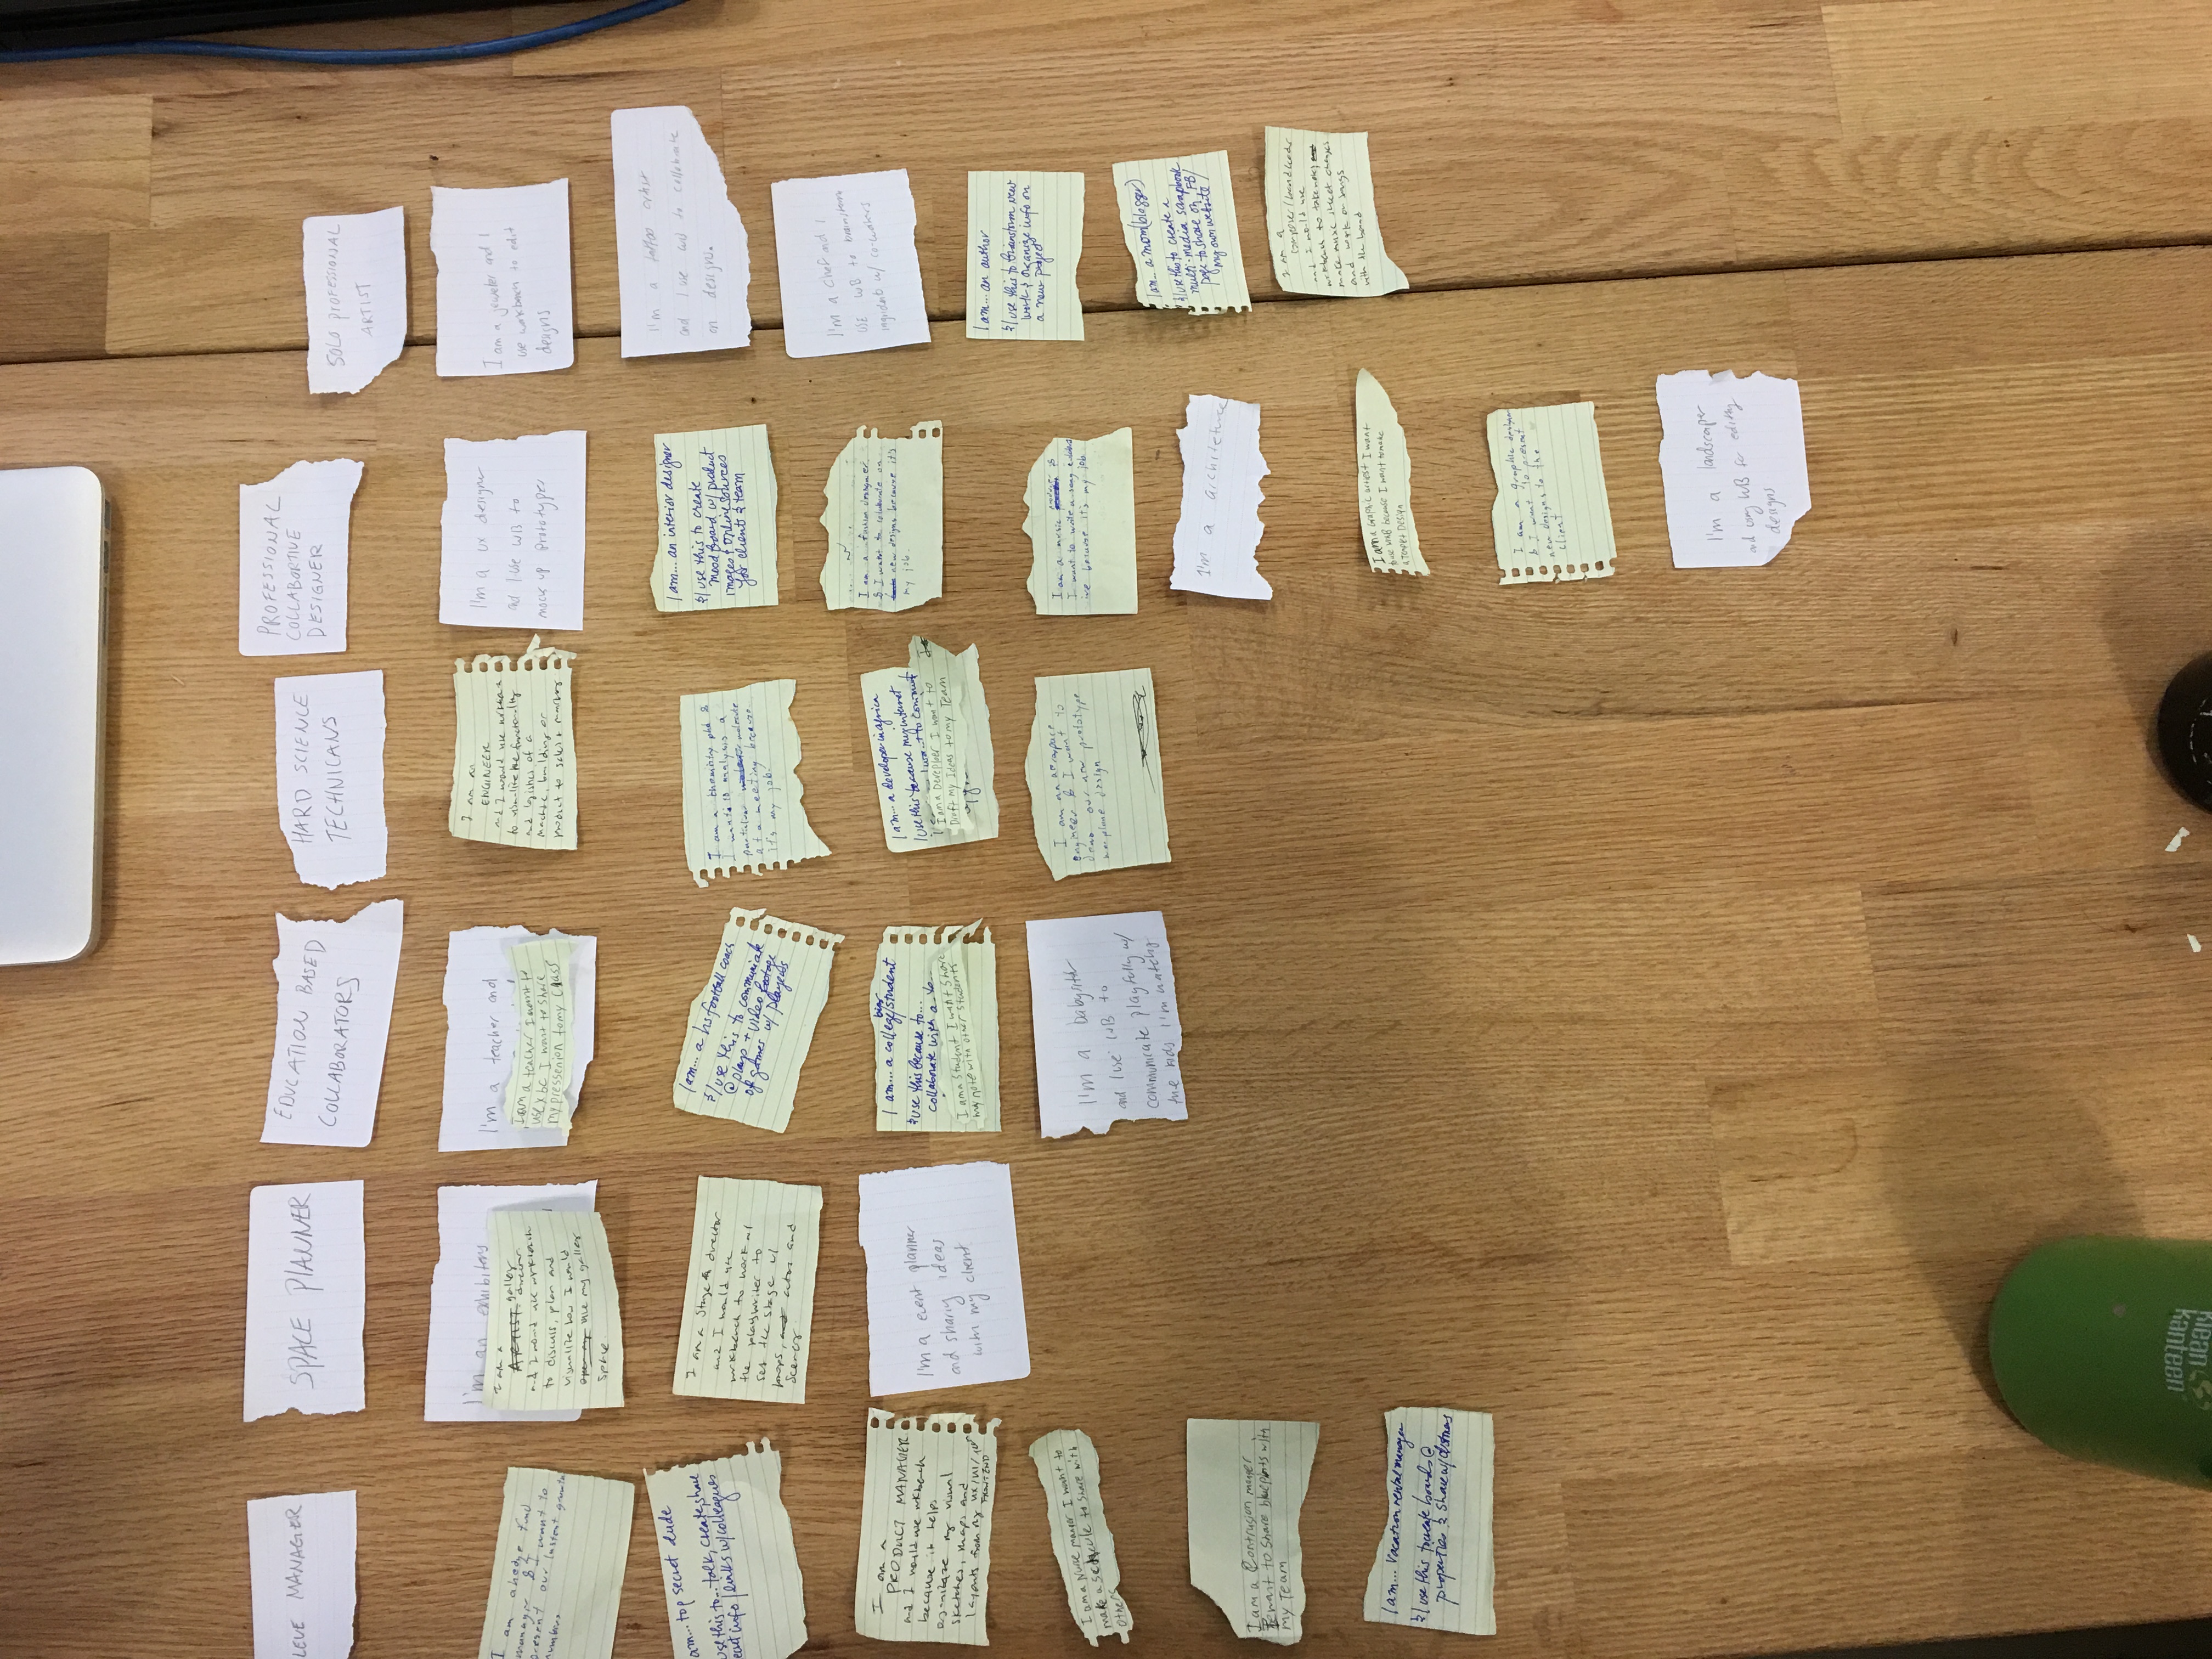 LEVE MANAGER
I am a hedge fund
manager & I want to
present our lastest growth
numbers
am... top secret dude
use this to... talk, create, share
secret info / links w/ colleagues
I am a
PRODUCT MANAGER
and I would use wrkbench
because it helps
organitaze my visual
sketches, maps and
layouts from my UX/UI/
FRONT END
I am a Nurse manger I want to
make a Schcule to share with
others
I am a Contrusion manger
I want to share blueprints with
my Team
I am... vacation rental manager
& I use this to create boards @
properties & share w/
SPACE PLANNER
I'm an exhibitory
I am a
ARTIST gallery
director
and I would use wrkbench
to discuss, plan and
visualite how I would
use my gallery
space.
I am a Stage director
and I would use
wrkbench to work w/
the playwriter to
set the stage w/
props, actors and
scenery
I'm a event planner
and sharing ideas
with my client
EDUCATION BASED
COLLABORATORS
I'm a teacher and
I am a teacher I want to
use x bc I want to share
my pressenion to my class
I am... a hs football coach
& I use this to communicate
@ plays + video footage
of games w/ players
I am... a college/student
& use this because to...
collaborate with a
I am a Student I want Share
my note with other students
I'm a babysitter
and I use WB to
communicate playfully w/
the kids I'm watching
HARD SCIENCE
TECHNICANS
I am an
ENGINEER
and I would use wrkbench
to visualite the functionality
and logistics of a
machine, building or
product to sales + marketing
I am a chemistry phd &
I want to analysis a
particular molecule
at a meeting because
it's my job.
I am... a developer in africa
I use this because my internet
I am a Derepber I want to
Draft my Ideas to my Team
I am an aerospace
engineer & I want to
demo our new prototype
warplane design
PROFESSIONAL
COLLABORTIVE
DESIGNER
I'm a ux designer
and I use WB to
mock up prototypes
I am... an interior designer
& I use this to create
mood board w/ product
images + online sources
for client & team
I am a fashion designer
& I want to collaborate on
new designs because it's
my job.
I am a music producer &
I want to write a song
because it's my job
I'm a architeture
I am a Graphic artest I want
to use WB because I want to make
a Design
I am a graphic designer
& I want to present
new designs to the
client
I'm a landscaper
and using WB for editing
designs
SOLO PROFESSIONAL
ARTIST
I am a jeweler and I
use workbench to edit
designs
I'm a tattoo artist
and I use WB to collaborate
on designs.
I'm a chef and I
USE WB to brainstorm
ingredient w/ co-workers
I am... an author
& I use this to brainstorm new
work & organize info on
a new project
I am... a mom(blogger)
& I use this to create a
multi-media scrapbook
page to share on FB/
my own website/
I am a
composer/bandleader
and I would use
wrkbench to take notes
make music sheet changes
and work on songs
with the band
klean
kanteen